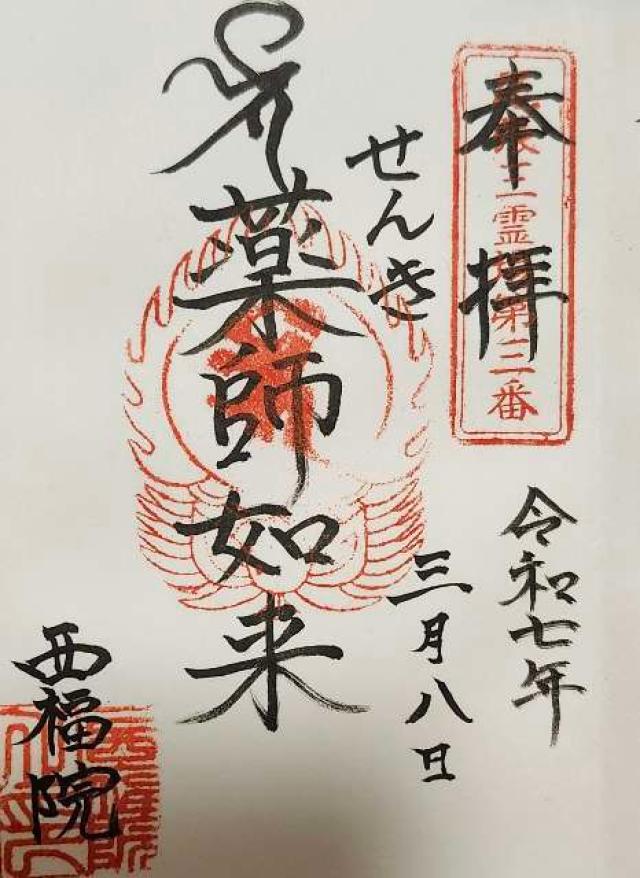 奉拝
霊場第三番
令和七年
三月八日
せんき
薬師如来
西福院